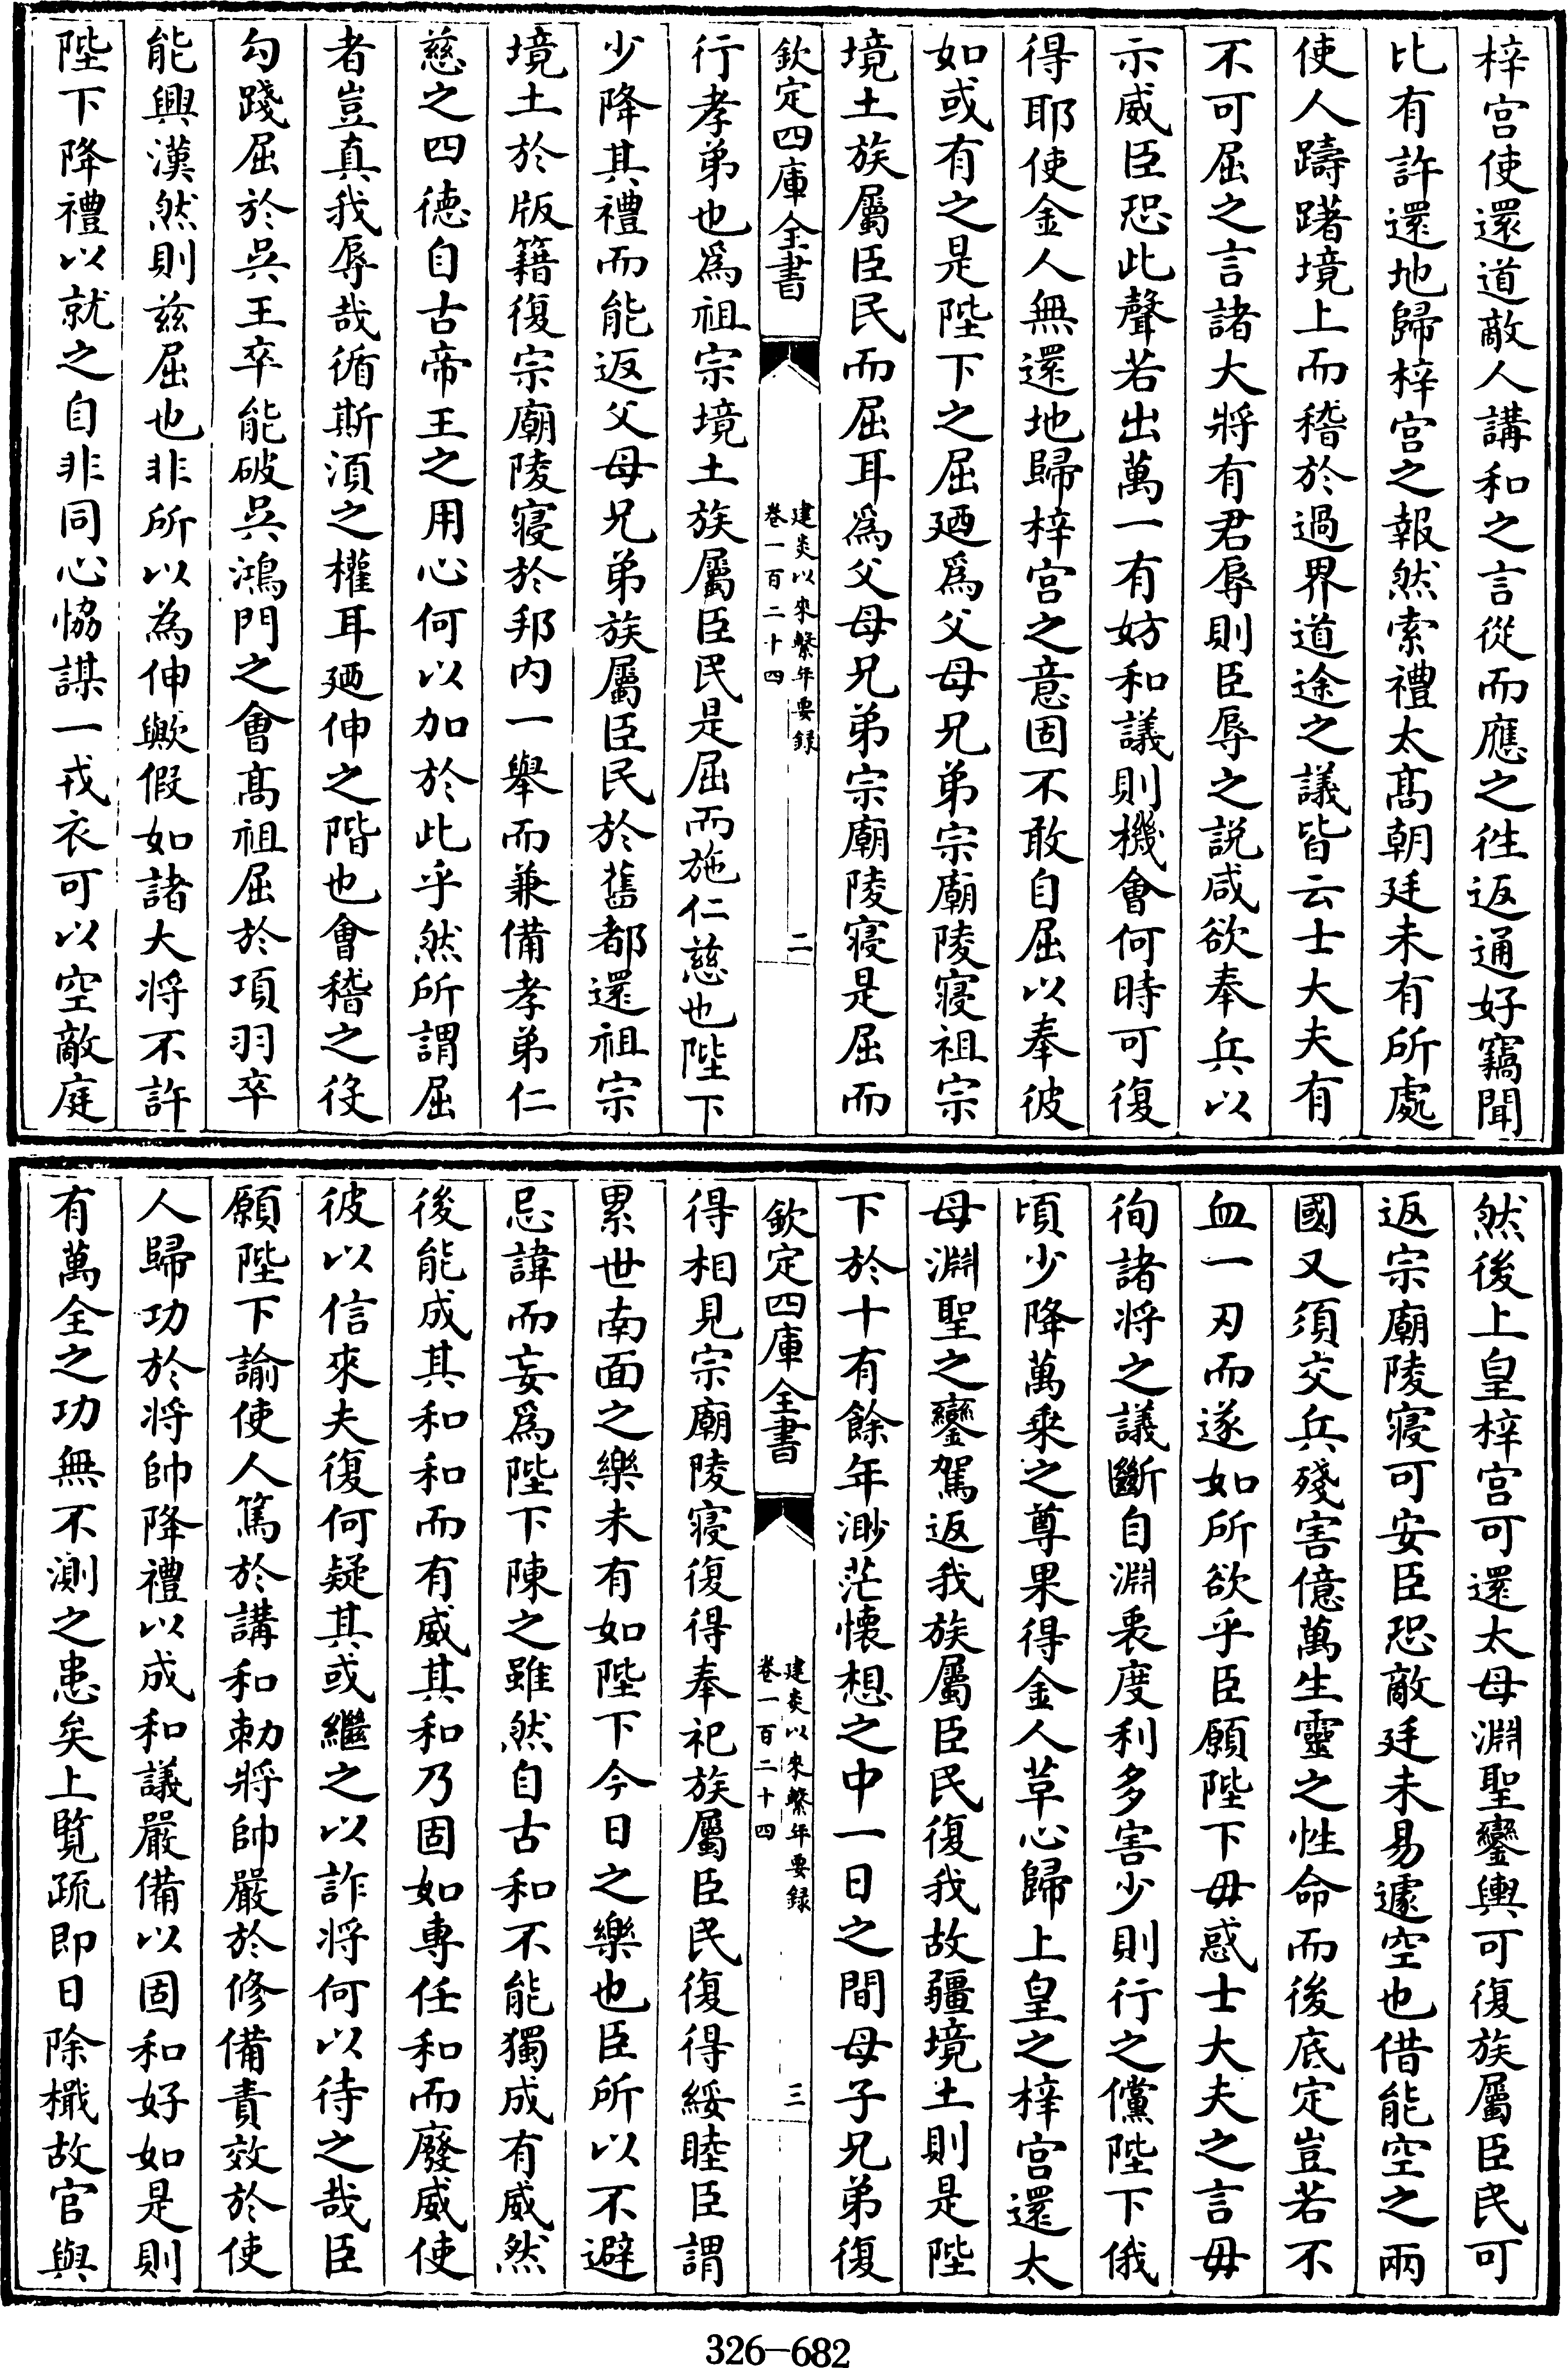 梓宫使還道敵人講和之言從而應之徃返通好竊聞
比有許還地歸梓宫之報然索禮太髙朝廷未有所處
使人躊躇境上而稽於過界道途之議皆云士大夫有
不可屈之言諸大將有君辱則臣辱之説咸欲奉兵以
示威臣恐此聲若出萬一有妨和議則機會何時可復
得耶使金人無還地歸梓宫之意固不敢自屈以奉彼
如或有之是陛下之屈廼爲父母兄弟宗廟陵寢祖宗
境土族屬臣民而屈耳爲父母兄弟宗廟陵寢是屈而
欽定四庫全書
建炎以來繫年要録
卷一百二十四
二
行孝弟也爲祖宗境土族屬臣民是屈而施仁慈也陛下
少降其禮而能返父母兄弟族屬臣民於舊都還祖宗
境土於版籍復宗廟陵寢於邦内一舉而兼備孝弟仁
慈之四德自古帝王之用心何以加於此乎然所謂屈
者豈真我辱哉循斯湏之權耳廼伸之階也會稽之役
勾踐屈於吳王卒能破吳鴻門之會髙祖屈於項羽卒
能興漢然則兹屈也非所以為伸歟假如諸大将不許
陛下降禮以就之自非同心恊謀一戎衣可以空敵庭
然後上皇梓宫可還太母淵聖鑾輿可復族屬臣民可
返宗廟陵寢可安臣恐敵廷未易遽空也借能空之兩
國又須交兵殘害億萬生靈之性命而後底定豈若不
血一刃而遂如所欲乎臣願陛下毋惑士大夫之言毋
徇諸将之議斷自淵衷度利多害少則行之儻陛下俄
頃少降萬乗之尊果得金人革心歸上皇之梓宫還太
母淵聖之鑾駕返我族屬臣民復我故疆境土則是陛
下於十有餘年渺茫懐想之中一日之間母子兄弟復
欽定四庫全書
建炎以來繫年要録
卷一百二十四
三
得相見宗廟陵寢復得奉祀族屬臣民復得綏睦臣謂
累世南面之樂未有如陛下今日之樂也臣所以不避
忌諱而妄爲陛下陳之雖然自古和不能獨成有威然
後能成其和和而有威其和乃固如専任和而廢威使
彼以信來夫復何疑其或繼之以詐將何以待之哉臣
願陛下諭使人篤於講和勅將帥嚴於修備責效於使
人歸功於将帥降禮以成和議嚴備以固和好如是則
有萬全之功無不測之患矣上覧疏即日除檝故官與
326—682